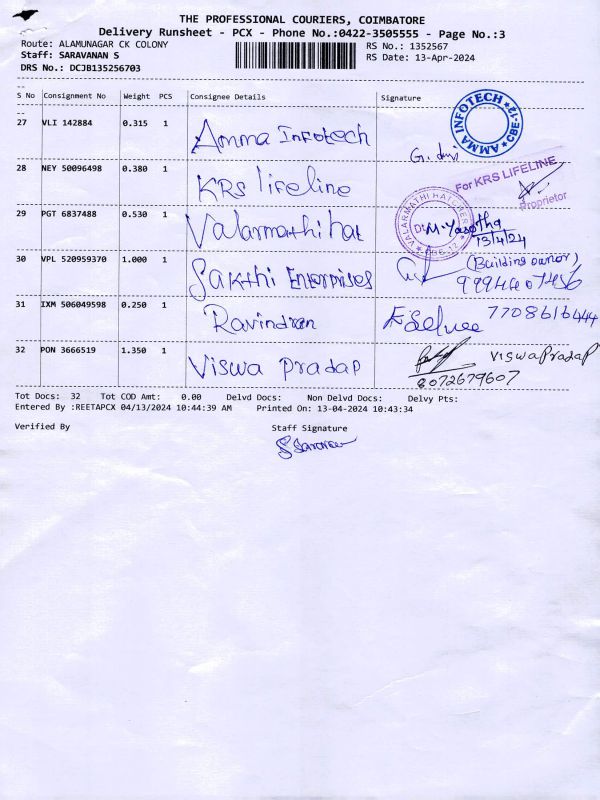 THE PROFESSIONAL COURIERS, COIMBATORE
Delivery Runsheet - PCX - Phone No.:0422-3505555 - Page No.:3
Route: ALAMUNAGAR CK COLONY
RS No.: 1352567
Staff: SARAVANAN S
RS Date: 13-Apr-2024
DRS No.: DCJB135256703
S No Consignment No Weight PCS Consignee Details Signature
27 VLI 142884 0.315 1 Amma Infotech
AMMA INFOTECH CBE-12
28 NEY 50096498 0.380 1 KRS lifeline
For KRS LIFELINE
Proprietor
29 PGT 6837488 0.530 1 Valarmathi hat
M. Yasotha
13/4/24
30 VPL 520959370 1.000 1 Sakthi Enterprises
(Building owner)
31 IXM 506049598 0.250 1 Ravindran
7708616444
32 PON 3666519 1.350 1 Viswa Pradap
Viswa Pradap
8072679607
Tot Docs: 32 Tot COD Amt: 0.00 Delvd Docs: Non Delvd Docs: Delvy Pts:
Entered By :REETAPCX 04/13/2024 10:44:39 AM Printed On: 13-04-2024 10:43:34
Verified By Staff Signature